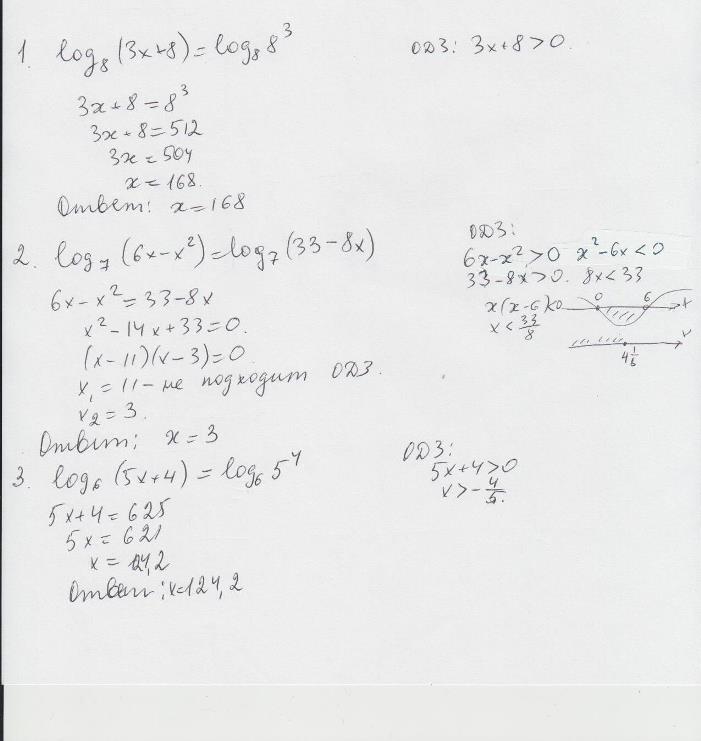 1. log₈(3x+8) = log₈8³
ОДЗ: 3x+8>0.
3x+8=8³
3x+8=512
3x=504
x=168.
Ответ: x=168
2. log₇(6x-x²)=log₇(33-8x)
ОДЗ:
6x-x²>0 x²-6x<0
33-8x>0. 8x<33
x(x-6)<0 0 6 x
x<33/8
4 1/8 x
6x-x²=33-8x
x²-14x+33=0.
(x-11)(x-3)=0
x₁=11 - не подходит ОДЗ.
x₂=3.
Ответ: x=3
3. log₆(5x+4) = log₆5⁴
ОДЗ:
5x+4>0
x>-4/5.
5x+4=625
5x=621
x=124,2
Ответ: x=124,2